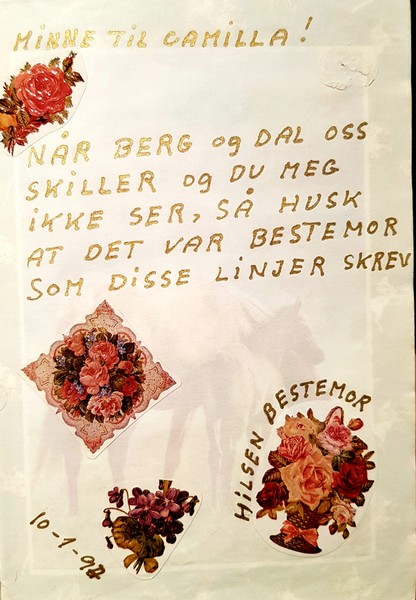 MINNE TIL CAMILLA!
NÅR BERG og DAL OSS
SKILLER og DU MEG
IKKE SER, SÅ HUSK
AT DET VAR BESTEMOR
SOM DISSE LINJER SKREV
HILSEN BESTEMOR
10-1-97